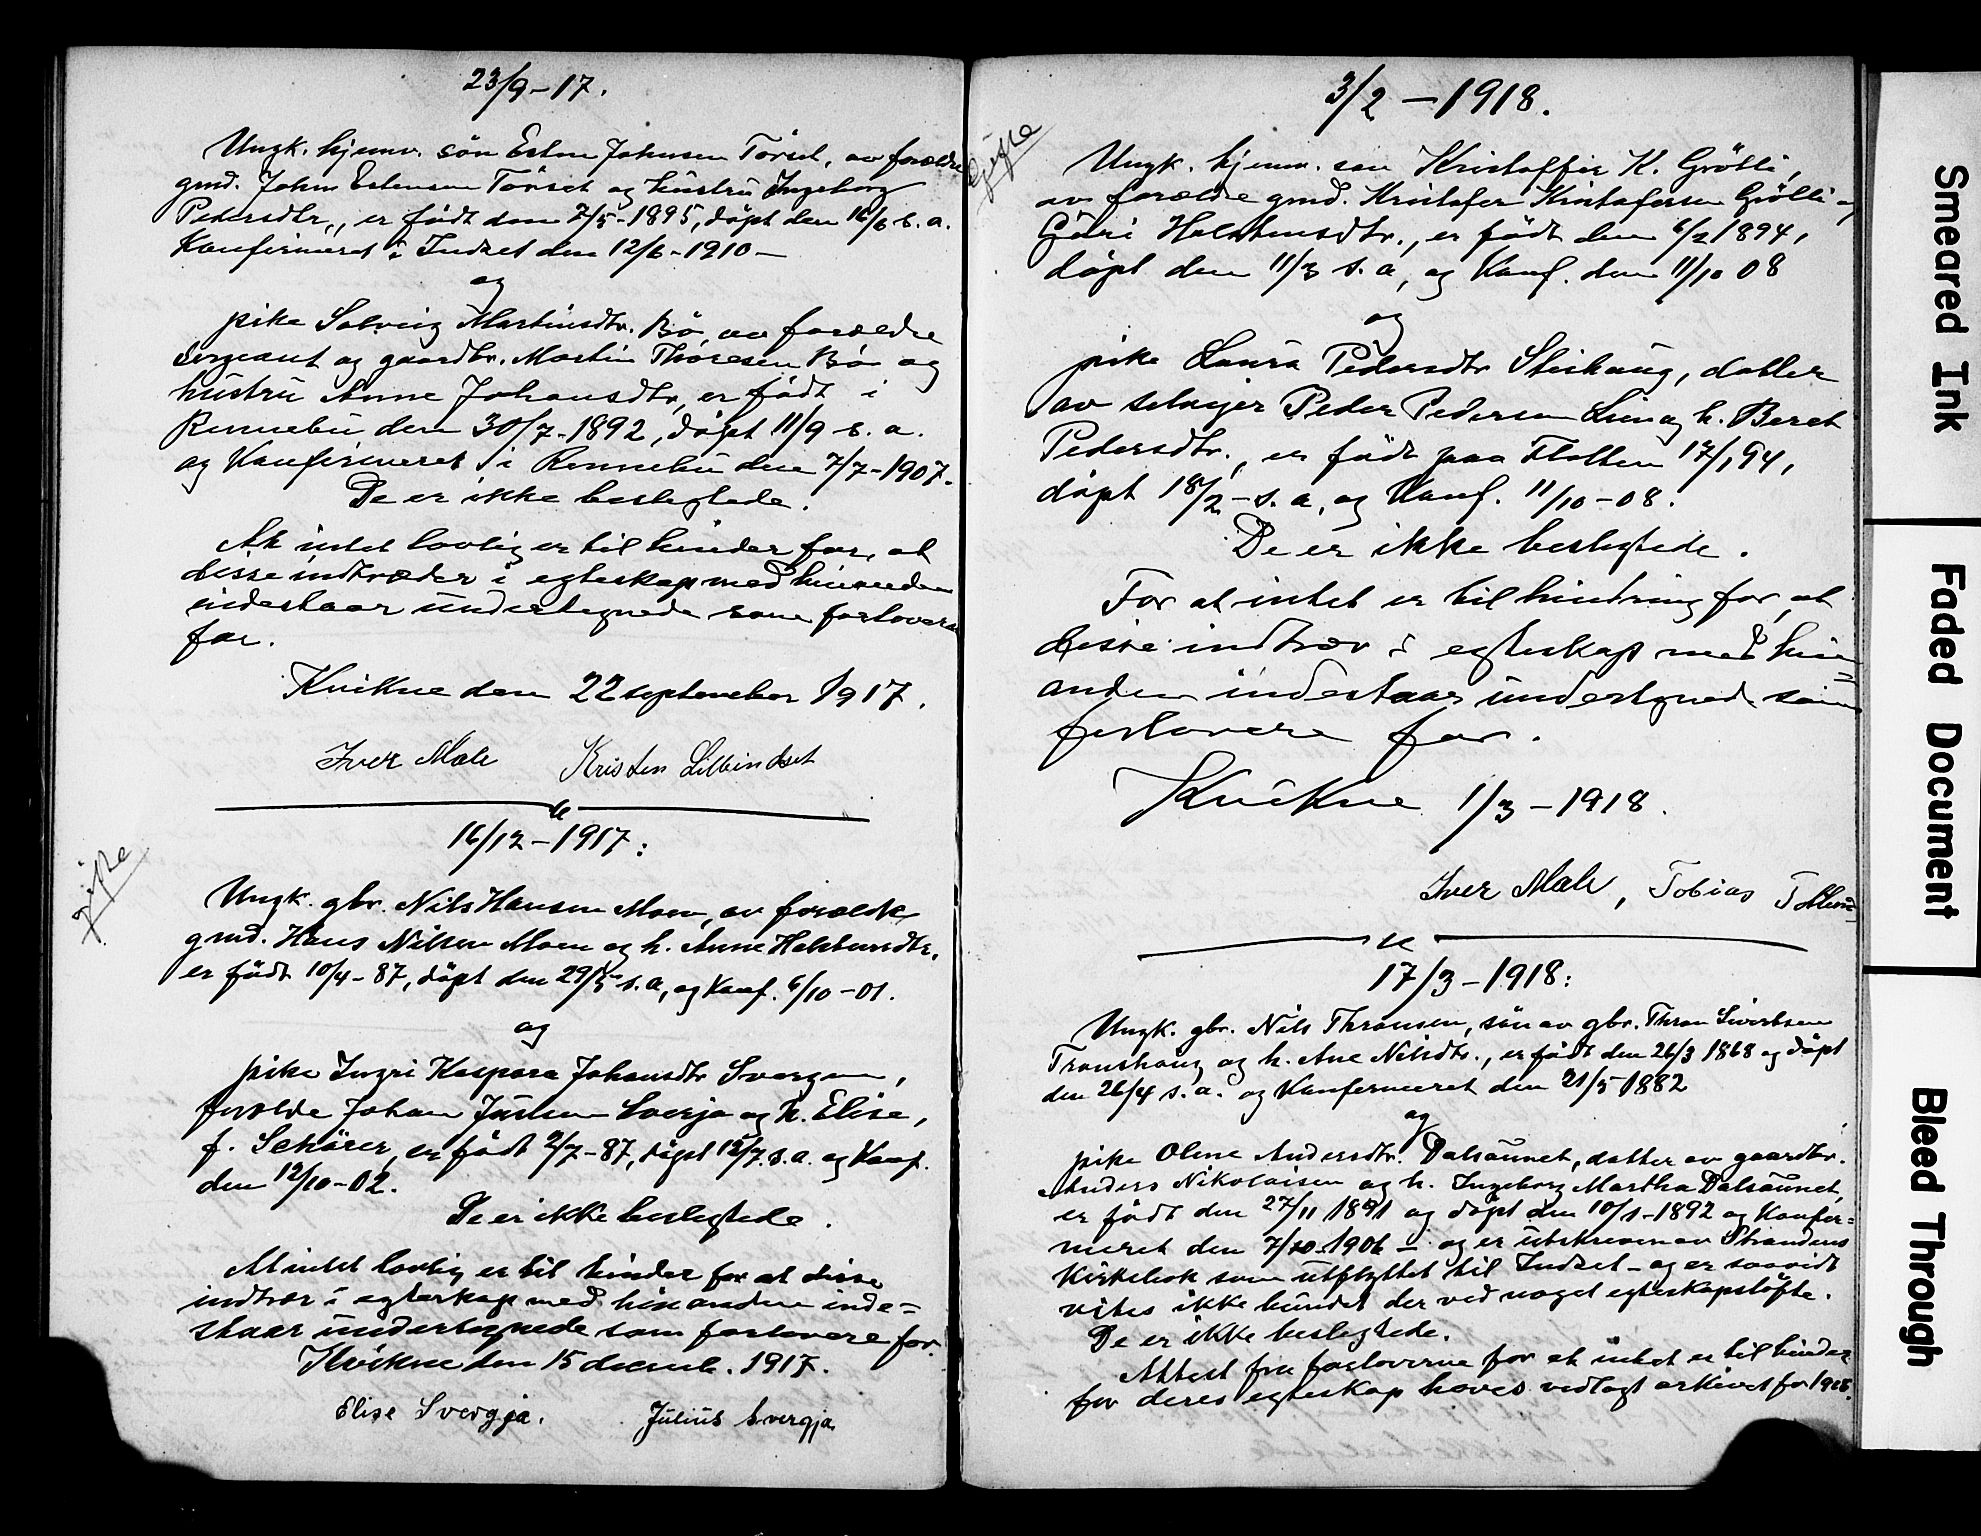 23/9 - 17.
Ungk. hjemv. sön Esten Johnsen Törset, av forældre
gmd. John Estensen Törset og hustru Ingeborg
Pedersdtr., er födt den 7/5 - 1895, döpt den 16/6 s. a.
Konfirmeret i Indset den 12/6 - 1910 -
og
pike Solveig Martinsdtr. Bö, av forældre
sergeant og gaardbr. Martin Thoresen Bö og
hustru Anne Johansdtr, er födt i
Rennebu den 30/7 - 1892, döpt 11/9 s. a.
og Konfirmeret i Rennebu den 7/7 - 1907.
De er ikke beslegtede.
At intet lovlig er til hinder for, at
disse indtræder i egteskap med hinanden
indestaar undertegnede som forlovere
for.
Kvikne den 22 september 1917.
Iver Mæle Kristen Lillindset
16/12 - 1917:
gifte
Ungk. gbr. Nils Hansen Moen, av forældre
gmd. Hans Nilsen Moen og h. Anne Halstensdtr.
er födt 10/4 - 87, döpt den 29/5 s. a, og Konf. 6/10 - 01.
og
pike Ingri Kaspara Johansdtr Svergjen,
forældre Johan Justsen Svergja og h. Elise,
f. Schärer, er födt 2/7 - 87, döpt 12/7. s. a. og Konf.
den 12/10 - 02.
De er ikke beslegtede.
At intet lovlig er til hinder for at disse
indtrær i egteskap med hinanden inde=
staar undertegnede som forlovere for.
Kvikne den 15 decemb. 1917.
Elise Svergja. Julius Svergja
3/2 - 1918.
gifte
Ungk. hjemv. søn Kristoffer K. Grötli,
av forældre gmd. Kristofer Kristofersen Grötli og
Göri Halstensdtr., er födt den 6/2 1894,
döpt den 11/3 s. a, og Konf. den 11/10 08
og
pike Laura Pedersdtr Steihaug, datter
av selveier Peder Pedersen Lien og h. Beret
Pedersdtr., er födt paa Flatten 17/1 94,
döpt 18/2 - s. a, og Konf. 11/10 - 08.
De er ikke beslegtede.
For at intet er til hindring for, at
disse indtrær i egteskap med hin=
anden indestaar undertegnede som
forlovere for.
Kvikne 1/3 - 1918.
Iver Mæle, Tobias
17/3 - 1918:
Ungk. gbr. Nils Thronsen, sön av gbr. Thron Sivertsen
Tronshaug og h. Ane Nilsdtr., er födt den 26/3 1868 og döpt
den 26/4 s. a. og Konfermeret den 21/5 1882
og
pike Oline Andersdtr. Dalsaunet, datter av gaardbr.
Anders Nikolaisen og h. Ingeborg Martha Dalsaunet,
er födt den 27/11 1891 og döpt den 10/1 - 1892 og Konfer=
meret den 7/10 - 1906 - og er utskreven av Strandens
Kirkebok som utflyttet til Indset - og er saavidt
vites ikke bundet der ved noget egteskapslöfte.
De er ikke beslegtede.
Attest fra forloverne for at intet er til hinder
for deres egteskap haves vedlagt arkivet for 1918.
Smeared Ink
Faded Document
Bleed Through